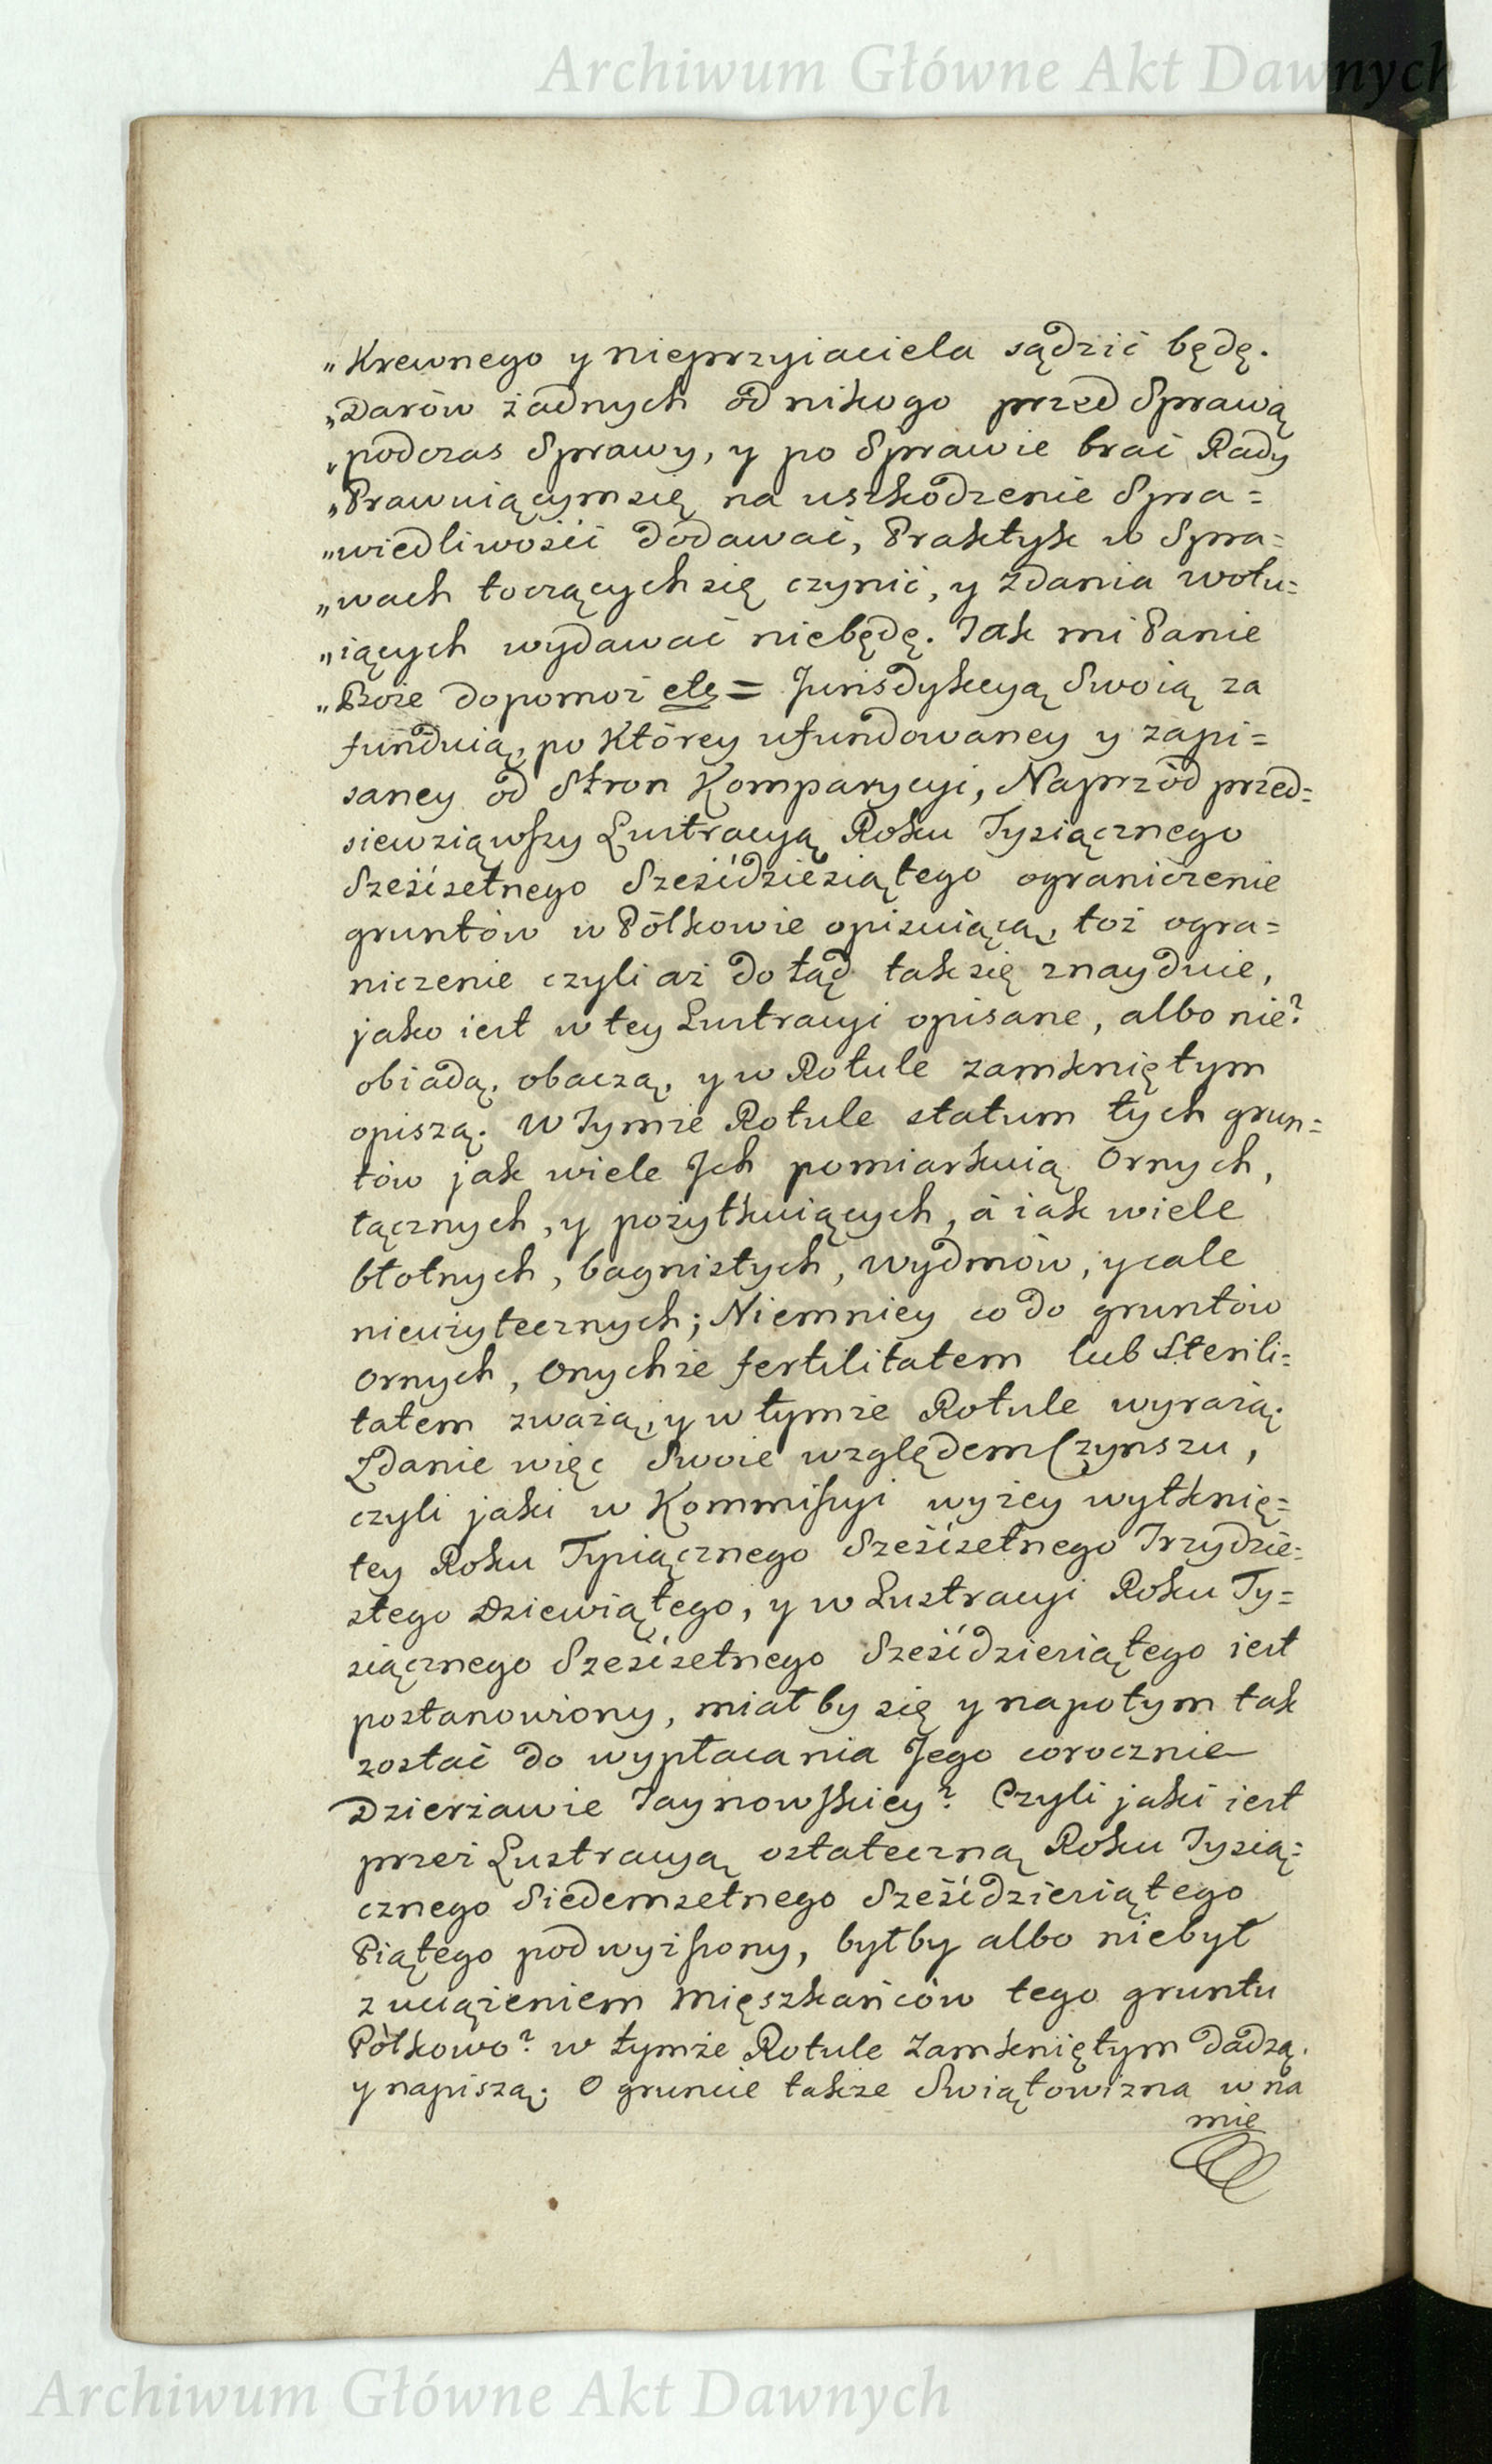 Archiwum Główne Akt Dawnych
„Krewnego y nieprzyiaciela sądzić będę.
„Darów żadnych od nikogo przed Sprawą
„podczas Sprawy, y po Sprawie brać Rady
„Prawuiącym się na uszkodzenie Spra=
„wiedliwości dodawać, Praktyk w Spra=
„wach toczących się czynić, y Zdania wotu=
„iących wydawać niebędę. Tak mi Panie
„Boże dopomoż etc = Jurisdykcyą Swoią za
funduią, po Którey ufundowaney y zapi=
saney od Stron Komparycyi, Naprzód przed=
siewziąwszy Lustracyą Roku Tysiącznego
Sześćsetnego Sześćdziesiątego ograniczenie
gruntów w Pólkowie opisuiącą, toż ogra=
niczenie czyli aż do tąd tak się znayduie,
jako iest w tey Lustracyi opisane, albo nie?
obiadą, obaczą, y w Rotule zamkniętym
opiszą. W Tymże Rotule statum tych grun=
tów jak wiele Jch pomiarkuią Ornych,
łącznych, y pożytkuiących, á iak wiele
błotnych, bagnistych, wydmów, y cale
nieużytecznych; Niemniey co do gruntów
Ornych, Onychże fertilitatem lub Sterili=
tatem zważą, y w tymże Rotule wyrażą.
Zdanie więc Swoie względem Czynszu,
czyli jaki w Kommissyi wyżey wytknię=
tey Roku Tysiącznego Sześćsetnego Trzydzie=
stego Dziewiątego, y w Lustracyi Roku Ty=
siącznego Sześćsetnego Sześćdziesiątego iest
postanowiony, miałby się y napotym tak
zostać do wypłacania Jego corocznie
Dzierżawie Taynowskiey? Czyli jaki iest
przez Lustracyą ostateczną Roku Tysią=
cznego Siedemsetnego Sześćdziesiątego
Piątego podwyższony, byłby albo niebył
z uciążeniem Mięszkańców tego gruntu
Pólkowo? w tymże Rotule Zamkniętym dadzą.
y napiszą. O gruncie także Swiątowizna w na
mie
Archiwum Główne Akt Dawnych